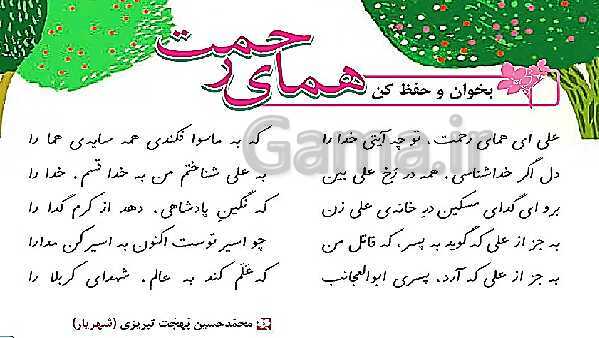 همای رحمت
بخوان و حفظ کن
علی ای همای رحمت، تو چه آیتی خدا را که به ماسوا فکندی همه سایه‌ی هما را
دل اگر خداشناسی، همه در رخ علی بین به علی شناختم من به خدا قسم، خدا را
برو ای گدای مسکین درِ خانه‌ی علی زن که نگین پادشاهی، دهد از کرم گدا را
به جز از علی که گوید به پسر، که قاتل من چو اسیر توست اکنون به اسیر کن مدارا
به جز از علی که آرد، پسری ابوالعجائب که عَلَم کند به عالم، شهدای کربلا را
محمّدحسین بَهجَت تبریزی (شهریار)
Gama.ir